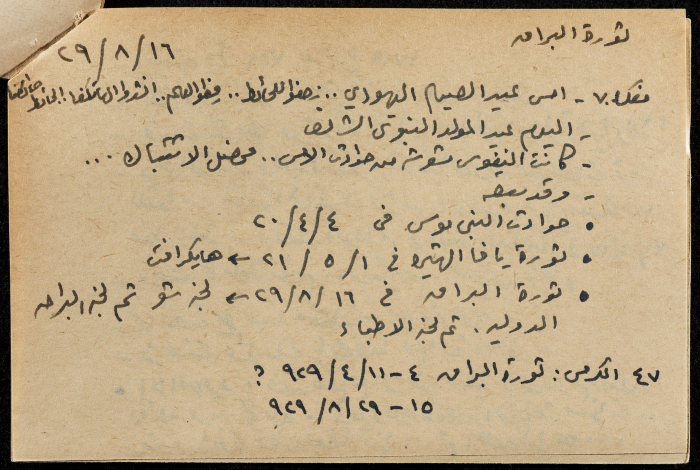 ثورة البراق
٢٩/٨/١٦
٧ - امس عيد الصيام اليهودي .. للحائط .. علمهم .. انشدوا الهاتكفا! الحائط حائطنا
- اليوم عيد المولد النبوي الشريف
- كانت النفوس مشوشة من حوادث الامس .. فحصل الاشتباك ...
- وقد سبقه
• حوادث النبي موسى في ٢٠/٤/٤
• ثورة يافا الشهيرة في ٢١/٥/١ ← هايكرافت
• ثورة البراق في ٢٩/٨/١٦ ← لجنة شو ثم لجنة البراق
الدولية. ثم لجنة الاطباء
٤٧ اكرمس: ثورة البراق ٤-٩٢٩/٤/١١ ؟
١٥-٩٢٩/٨/٢٩